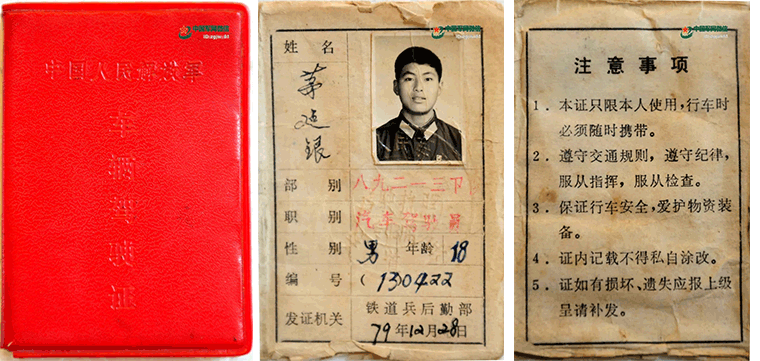 中国军网微信
中国人民解放军
车辆驾驶证
中国军网微信
姓名
茅延银
部别 八九二一三下
职别 汽车驾驶员
性别 男 年龄 18
编号 (130422
发证机关 铁道兵后勤部
79年12月28日
中国军网微信
注意事项
1．本证只限本人使用，行车时
必须随时携带。
2．遵守交通规则，遵守纪律，
服从指挥，服从检查。
3．保证行车安全，爱护物资装
备。
4．证内记载不得私自涂改。
5．证如有损坏、遗失应报上级
呈请补发。